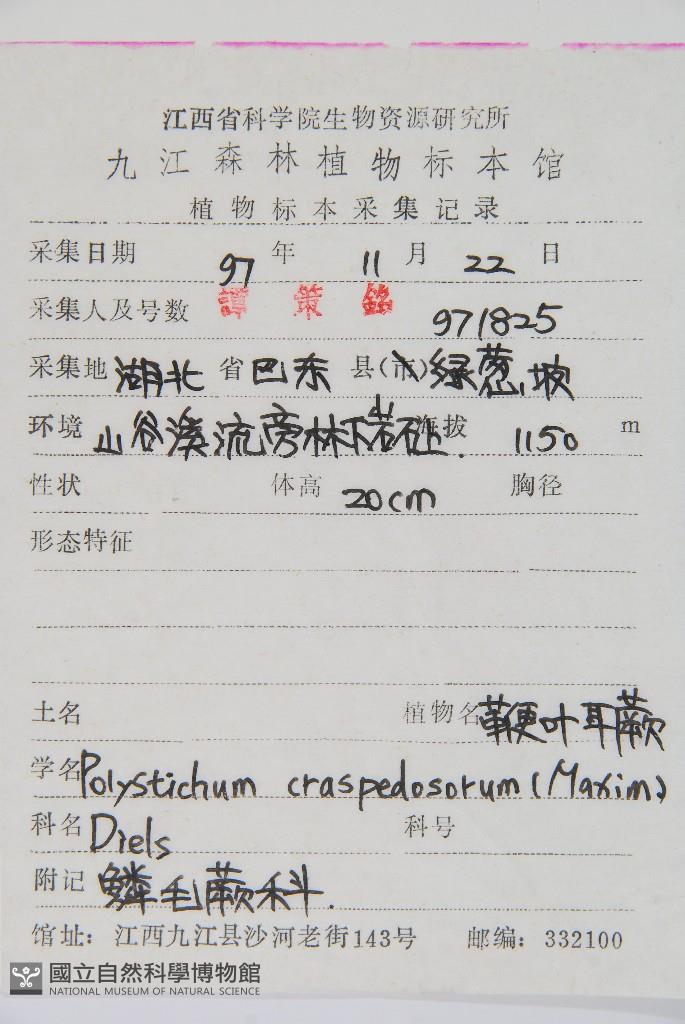 江西省科学院生物资源研究所
九江森林植物标本馆
植物标本采集记录
采集日期 97 年 11 月 22 日
采集人及号数 譚策銘 971825
采集地 湖北 省 巴东 县(市) 绿葱坡
环境 山谷溪流旁林下岩石上. 海拔 1150 m
性状 体高 20cm 胸径
形态特征
土名 植物名 鞭叶耳蕨
学名 Polystichum craspedosorum (Maxim)
科名 Diels 科号
附记 鳞毛蕨科.
馆址: 江西九江县沙河老街143号 邮编: 332100
國立自然科學博物館
NATIONAL MUSEUM OF NATURAL SCIENCE